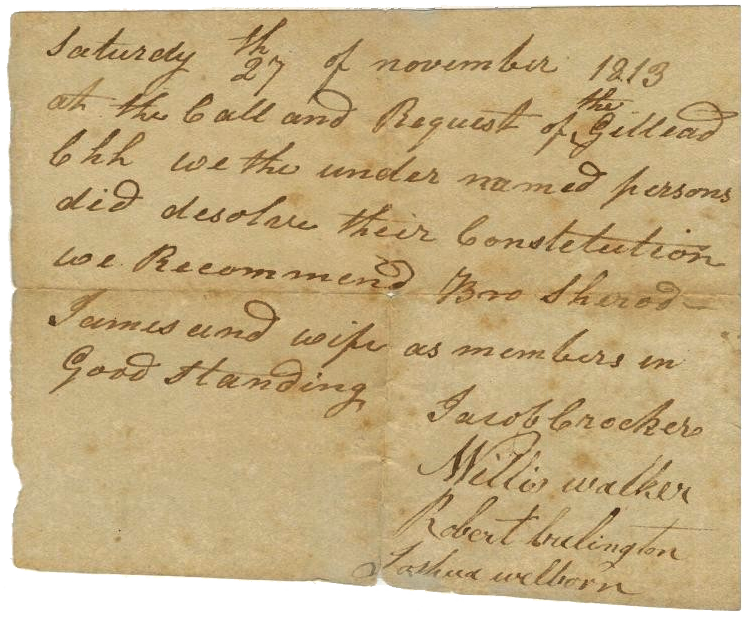 Saturdy 27th of november 1813
at the Call and Request of the Gillead
Chh we the under named persons
did desolve their Constetution
we Recommend Bro Sherod
James and wife as members in
Good standing
Jacob Crocker
Willis walker
Robert
Joshua welborn